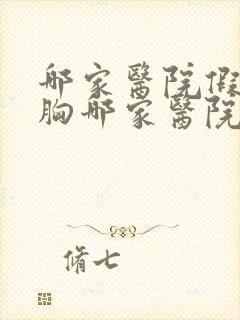 邮家醫院假
胸邮家醫院
脩七